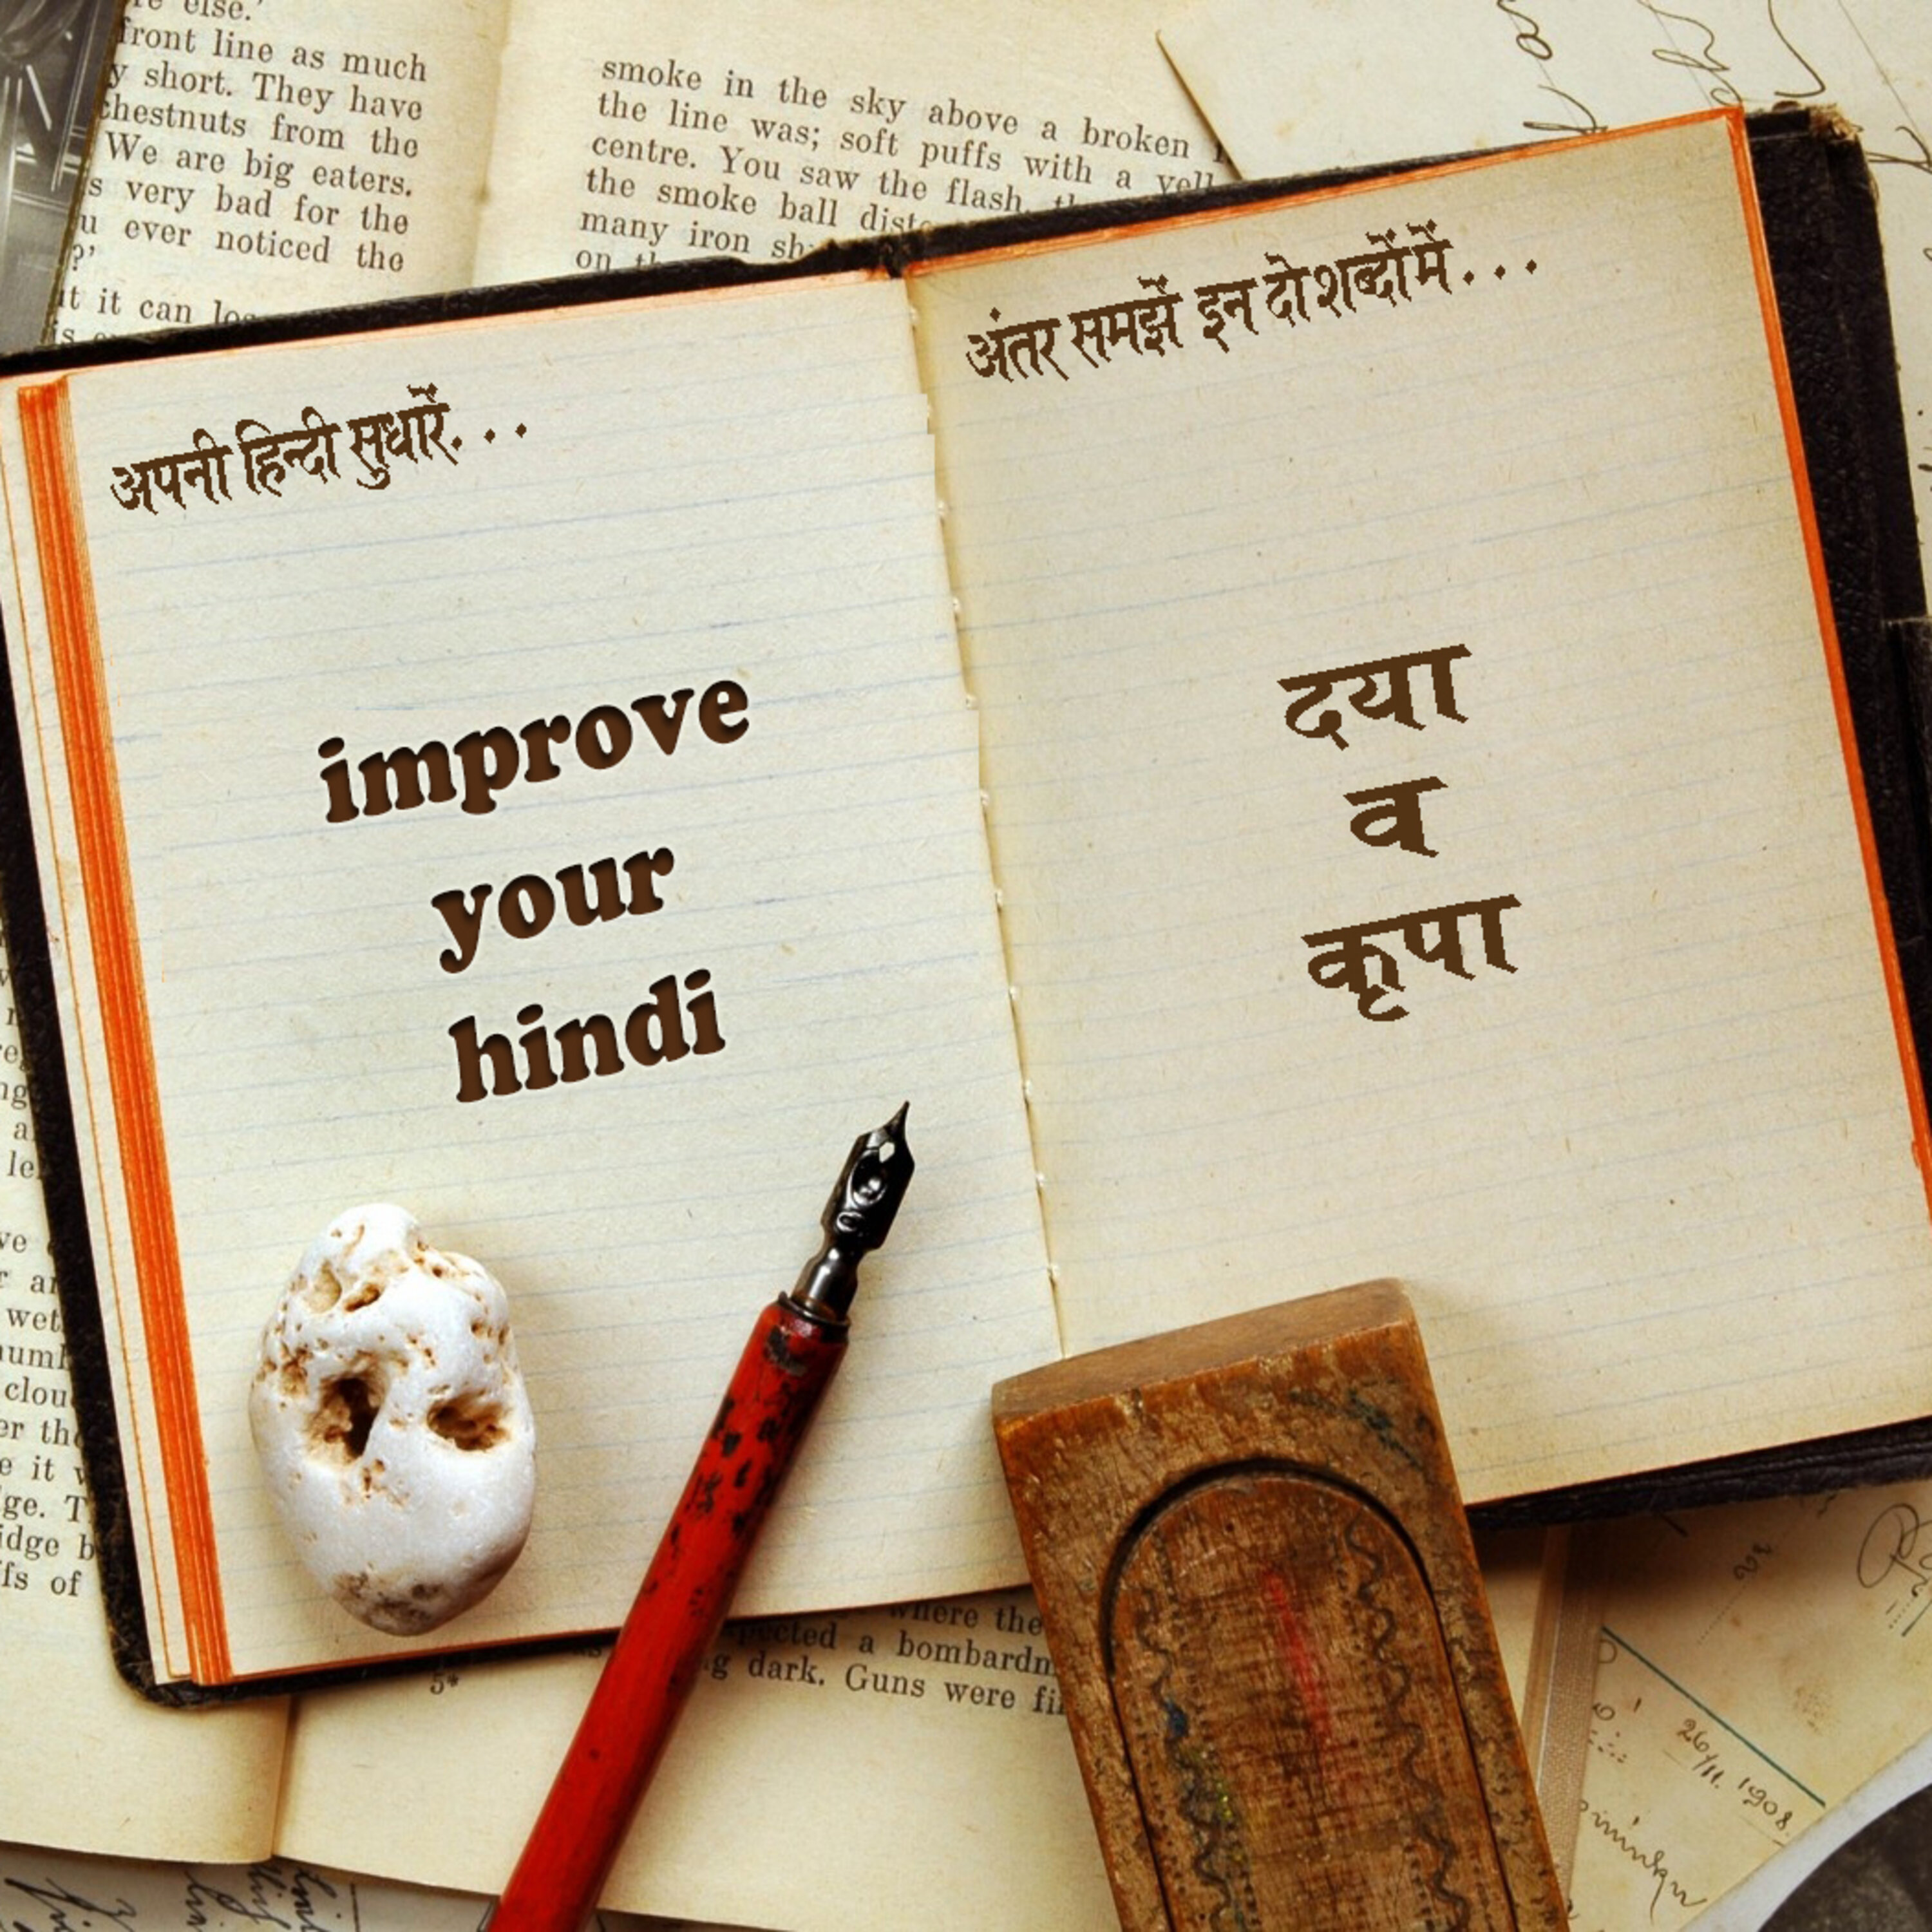 re else.'
front line as much
y short. They have
chestnuts from the
We are big eaters.
s very bad for the
u ever noticed the
?'
it it can
smoke in the sky above a broken
the line was; soft puffs with a
centre. You saw the flash,
the smoke ball
many iron
on
अपनी हिन्दी सुधारें...
improve
your
hindi
अंतर समझें इन दो शब्दों में...
दया
व
कृपा
where the
a bombardm
dark. Guns were
5*
wet
clou
er the
e it
ge. T
idge b
fs of
26/11. 1908.